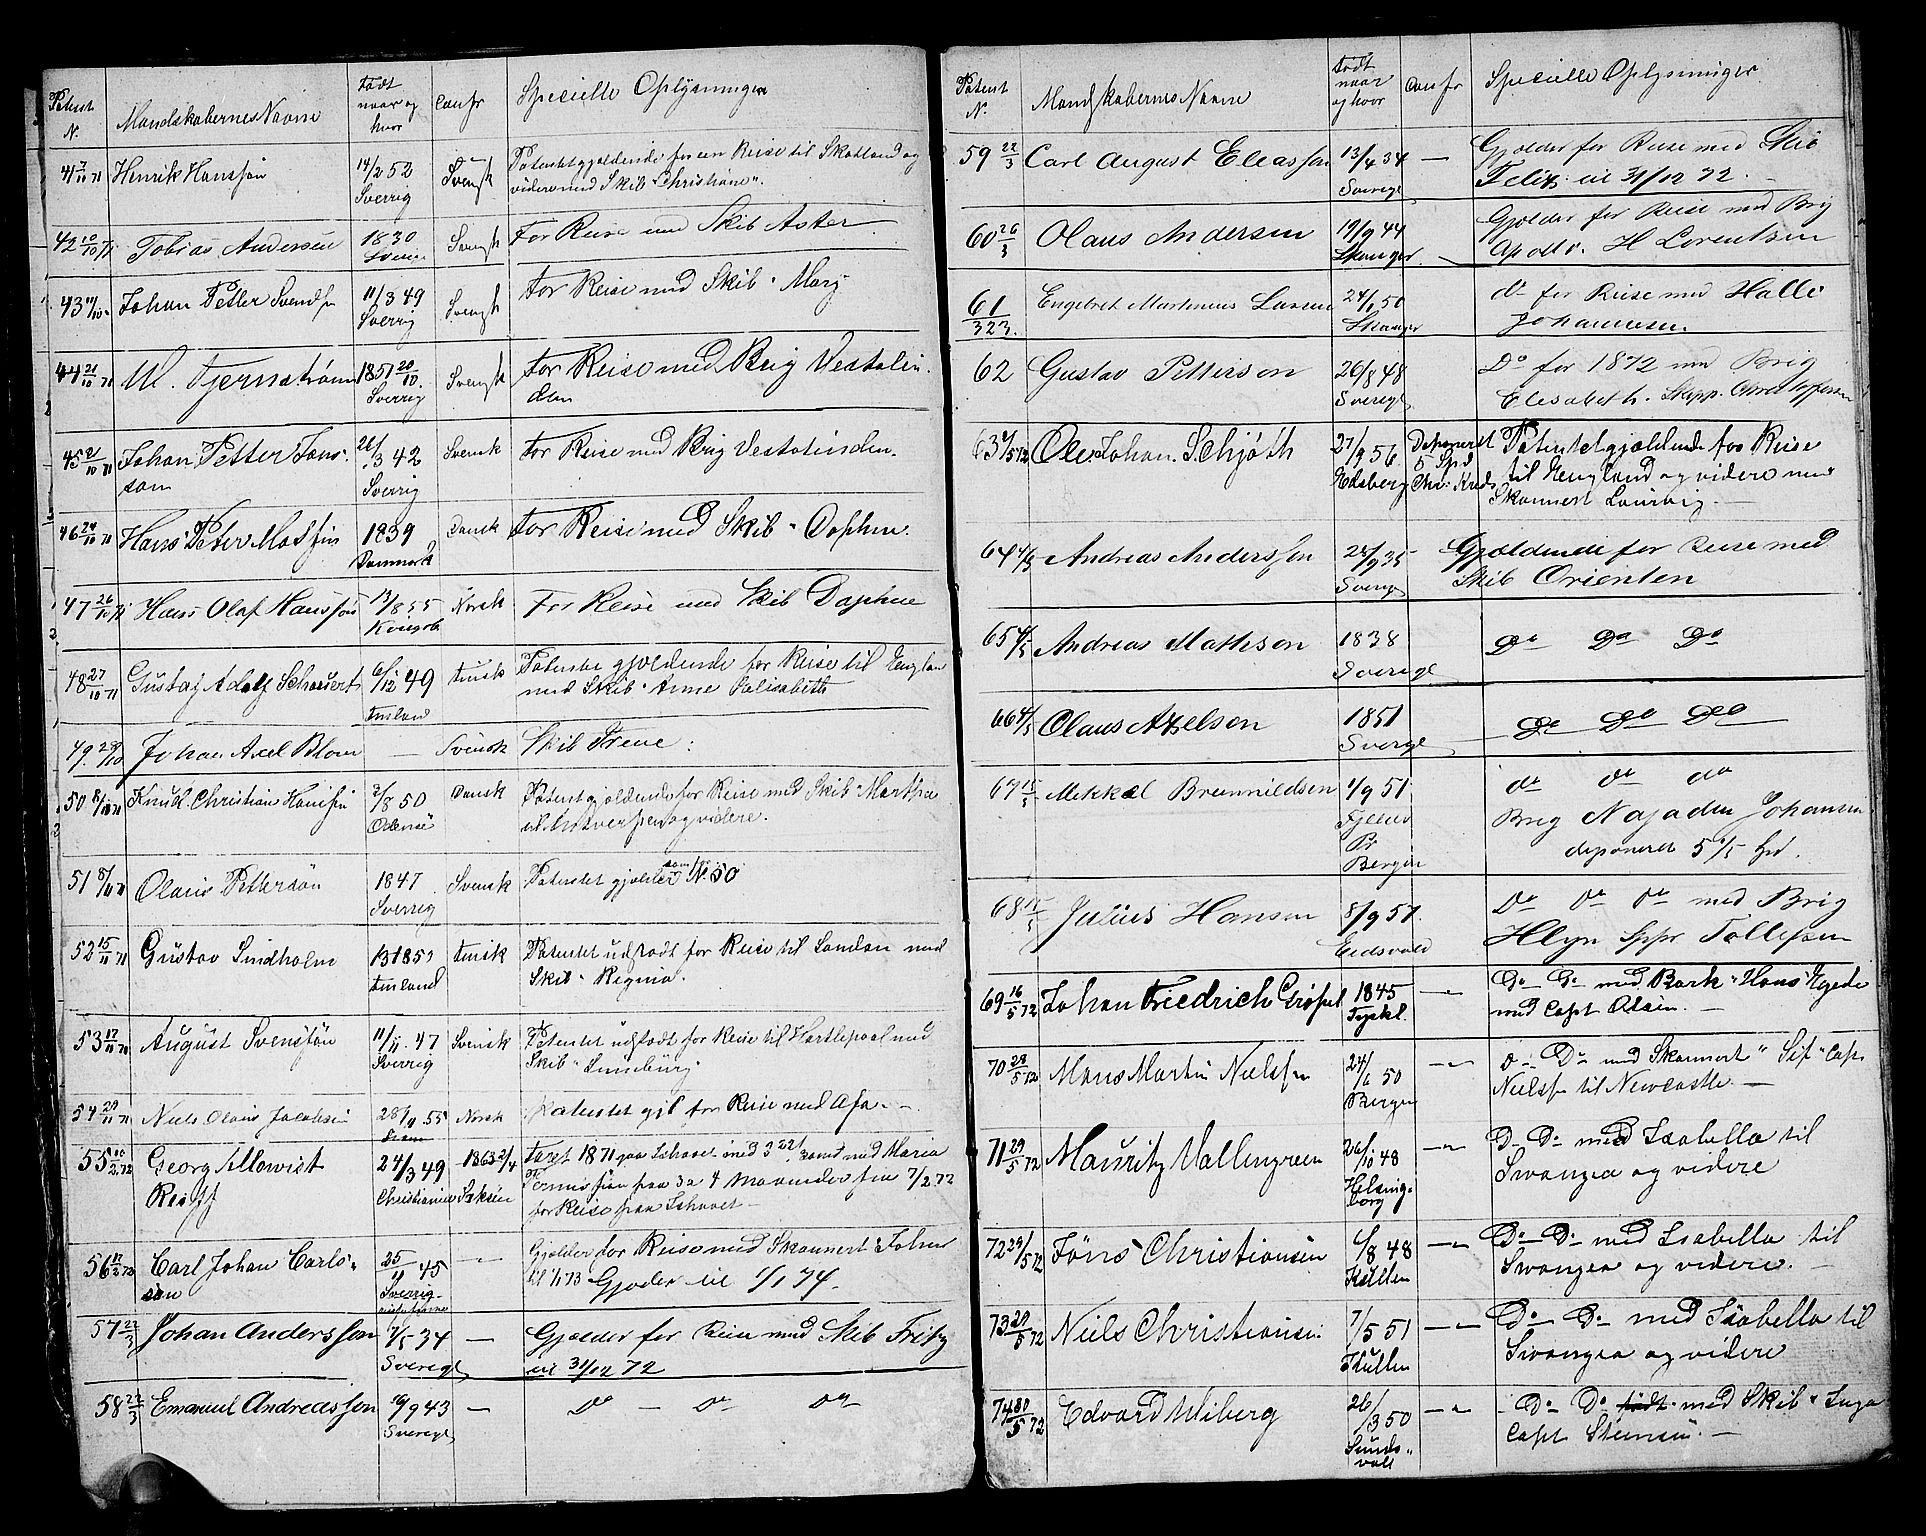 Patent N. Mandskabernes Navne Født naar og hvor Conf Specielle Oplysninger
41 7/10 71 Henrik Hanssøn 14/2 52 Sverrig Svensk Patentet gjældende for een Reise til Skotland og
videre med Skib "Christiane".
42 10/10 71 Tobias Andersen 1830 Sverig Svensk For Reise med Skib Aster.
43 11/10 Johan Petter Svends 11/3 49 Sverrig Svensk For Reise med Skib "Mary
44 21/10 71 M. Tjernstrøm 1851 20/10 Sverrig Svensk For Reise med Brig Vestalin
den
45 21/10 71 Johan Petter Jons
son 26/3 42 Sverrig Svensk For Reise med Brig Vestalinden.
46 24/10 71 Hans Peter Matsen 1839 Danmark Dansk For Reise med Skib "Daphne.
47 26/10 71 Hans Olaf Hanssøn 13/8 55 Norsk For Reise med Skib Daphne
48 27/10 71 Gustaf Adolf 6/12 49 Finland Finsk Patentet gjældende for Reise til Englan
med Skib "Anne Elisabeth
49. 29/10 Johan Axel Blom — Svensk Skib Irene:
50 8/11 71 Knud Christian Hansen 3/8 50 Odense Dansk Patent gjældende for Reise med Skib "Martha
til Antverpen og videre.
51 8/11 71 Olaus Petterson 1847 Sverrig Svensk Patentet gjælder som No 50
52 15/11 71 Gustav Lindholm Finland Finsk Patentet udstedt for Reise til London med
Skib "Regina.
53 17/11 71 August Svensson 11/11 47 Sverrig Svensk Patentet udstedt for Reise til Hartlepool med
Skib "Luneburg"
54 29/11 71 Niels Olaus Jacobsen 28/9 55 Norsk Patentet gjl for Reise med Afa. —
55 10/2 72 Georg Allowist
Reiss 24/3 49 Christiania 1863 faret 1871 paa med 3 samt med Maria
fra paa 3 a 4 Maaneder fra 7/2 72
for Reise fra —
56 17/2 72 Carl Johan Carls
son 25/11 45 Sverrig — Gjælder for Reise med Skonnert "Johan
til 1/1 73 Gjælder til 1/1 74.
57 22/3 Johan Anderssøn 7/5 34 Sverige — Gjælder for Reise med Skib Fritz
til 31/12 72
58 22/3 Emanuel Andreassøn 10/9 43 Sverige — Do — Do Do
Patent N. Mandskabernes Navne Født naar og hvor Conf Specielle Oplysninger
59 22/3 Carl August Eleassøn 13/4 34 Sverige — Gjælder for Reise med Skib
Felix til 31/12 72. —
60 26/3 Olaus Andersen 19/9 44 Stavanger — Gjælder for Reise med Brig
Apollo. H Lorentsen
61/323. Engebret Martinius Larsen 24/1 50 Do for Reise med Halle
Johannesen.
62 Gustav Petterson 26/8 48 Sverige Do for 1872 med Brig
Elesabeth. Skipp. Christoffersen
63 Ole Johan Schjøth 27/9 56 Edsberg Deponeret 5 Spd Patentet gjældende for Reise
til England og videre med
Skonnert Laurvig.
64 4/5 Andreas Anderssen 25/9 35 Sverige Gjældende for Reise med
Skib Orienten
65 4/5 Andreas Mattison 1838 Sverige Do Do Do
66 4/5 Olaus Axelson 1851 Sverge Do Do Do
67 15/5 Mikkal Brunnildsen 1/9 51 Bergen do do do
Brig Najaden Johansen
deponeret 5
68 15/5 Julius Hansen 8/9 57. Eidsvold Do Do Do med Brig
Hlyn Spr Tollefsen
69 16/5 72 Johan Friedrich Grøpel 1845 Tyskl. — Do Do med Bark "Hans Egede
med Capt Olsen. —
70 28/5 72 Hans Martin Nielsen 24/6 50 Bergen —"— Do Do med Skonnert "Sif" Capt
Nielsen til Newcastle —
71 29/5 72 Mauritz Vallengreen 26/10 48 Helsingborg —"— Do Do med Isabella til
Swansea og videre
72 29/5 72 Jøns Christiansen 6/8 48 Kullen —"— Do Do med Isabella til
Swansea og videre. —
73 29/5 72 Niels Christiansen 7/5 51 Kullen —"— Do Do med Isabella til
Swansea og videre
74 30/5 72 Edvard Wiberg 26/3 50 Sundsvall —"— Do Do født med Skib "Inga
Capt Steinsen. —